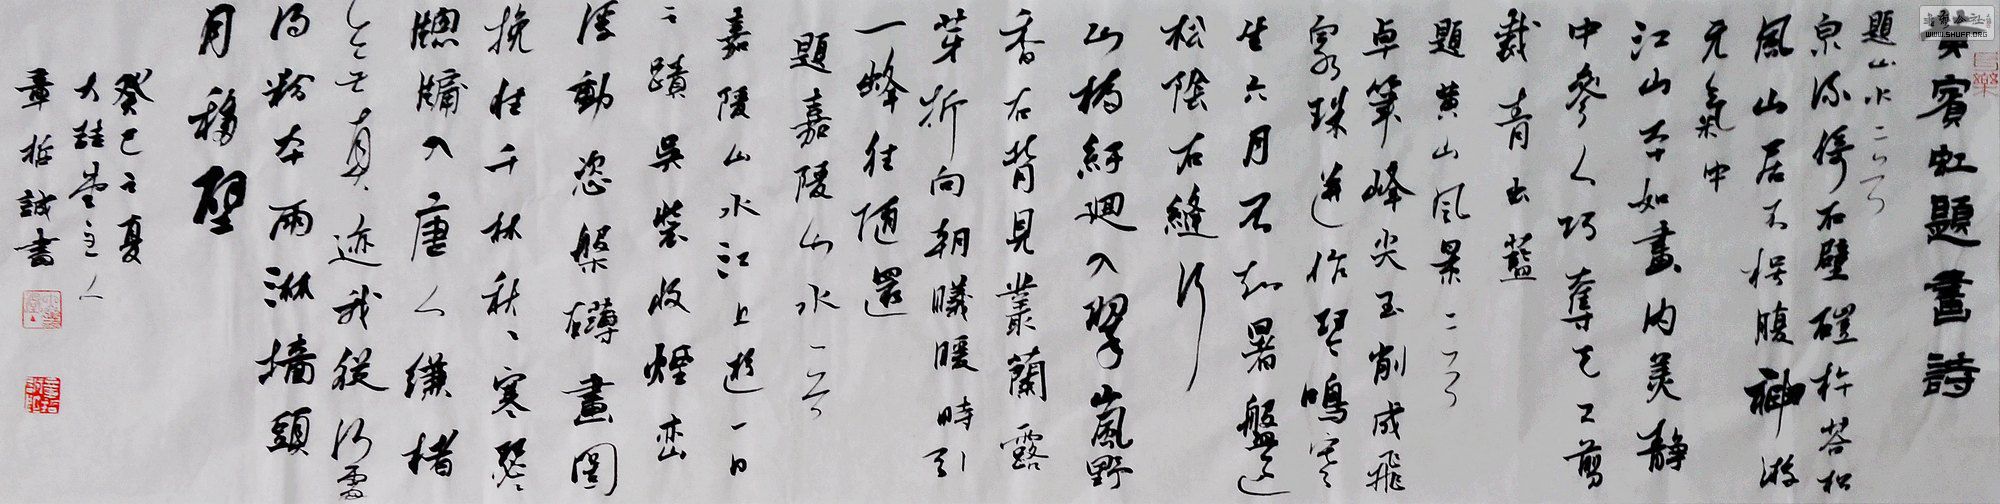 黄賓虹題畫詩
題山水二首
泉流倚石壁磴杵答松
風山居不揆腹神游
元氣中
江山本如畫內美靜
中參人巧奪天工剪
裁青出藍
題黄山風景二首
卓筆峰尖玉削成飛
泉珠迸作琴鳴寒
生六月不知暑盤過
松陰石縫行
山橋紆迴入翠嵐野
香石背見叢蘭露
芽折向朝曦暖時引
一蜂往隨還
題嘉陵山水一首
嘉陵山水江上遊一日
之蹟吳裝收煙巒
浮動恣槃礴畫圖
挽住千林秋秋寒磬
牕牖入唐人縑楮
亡真迹我從行雷
得粉本雨淋墻頭
月移壁
癸巳之夏
大主人
章哲誠書
書法公社
WWW.SHUFR.ORG